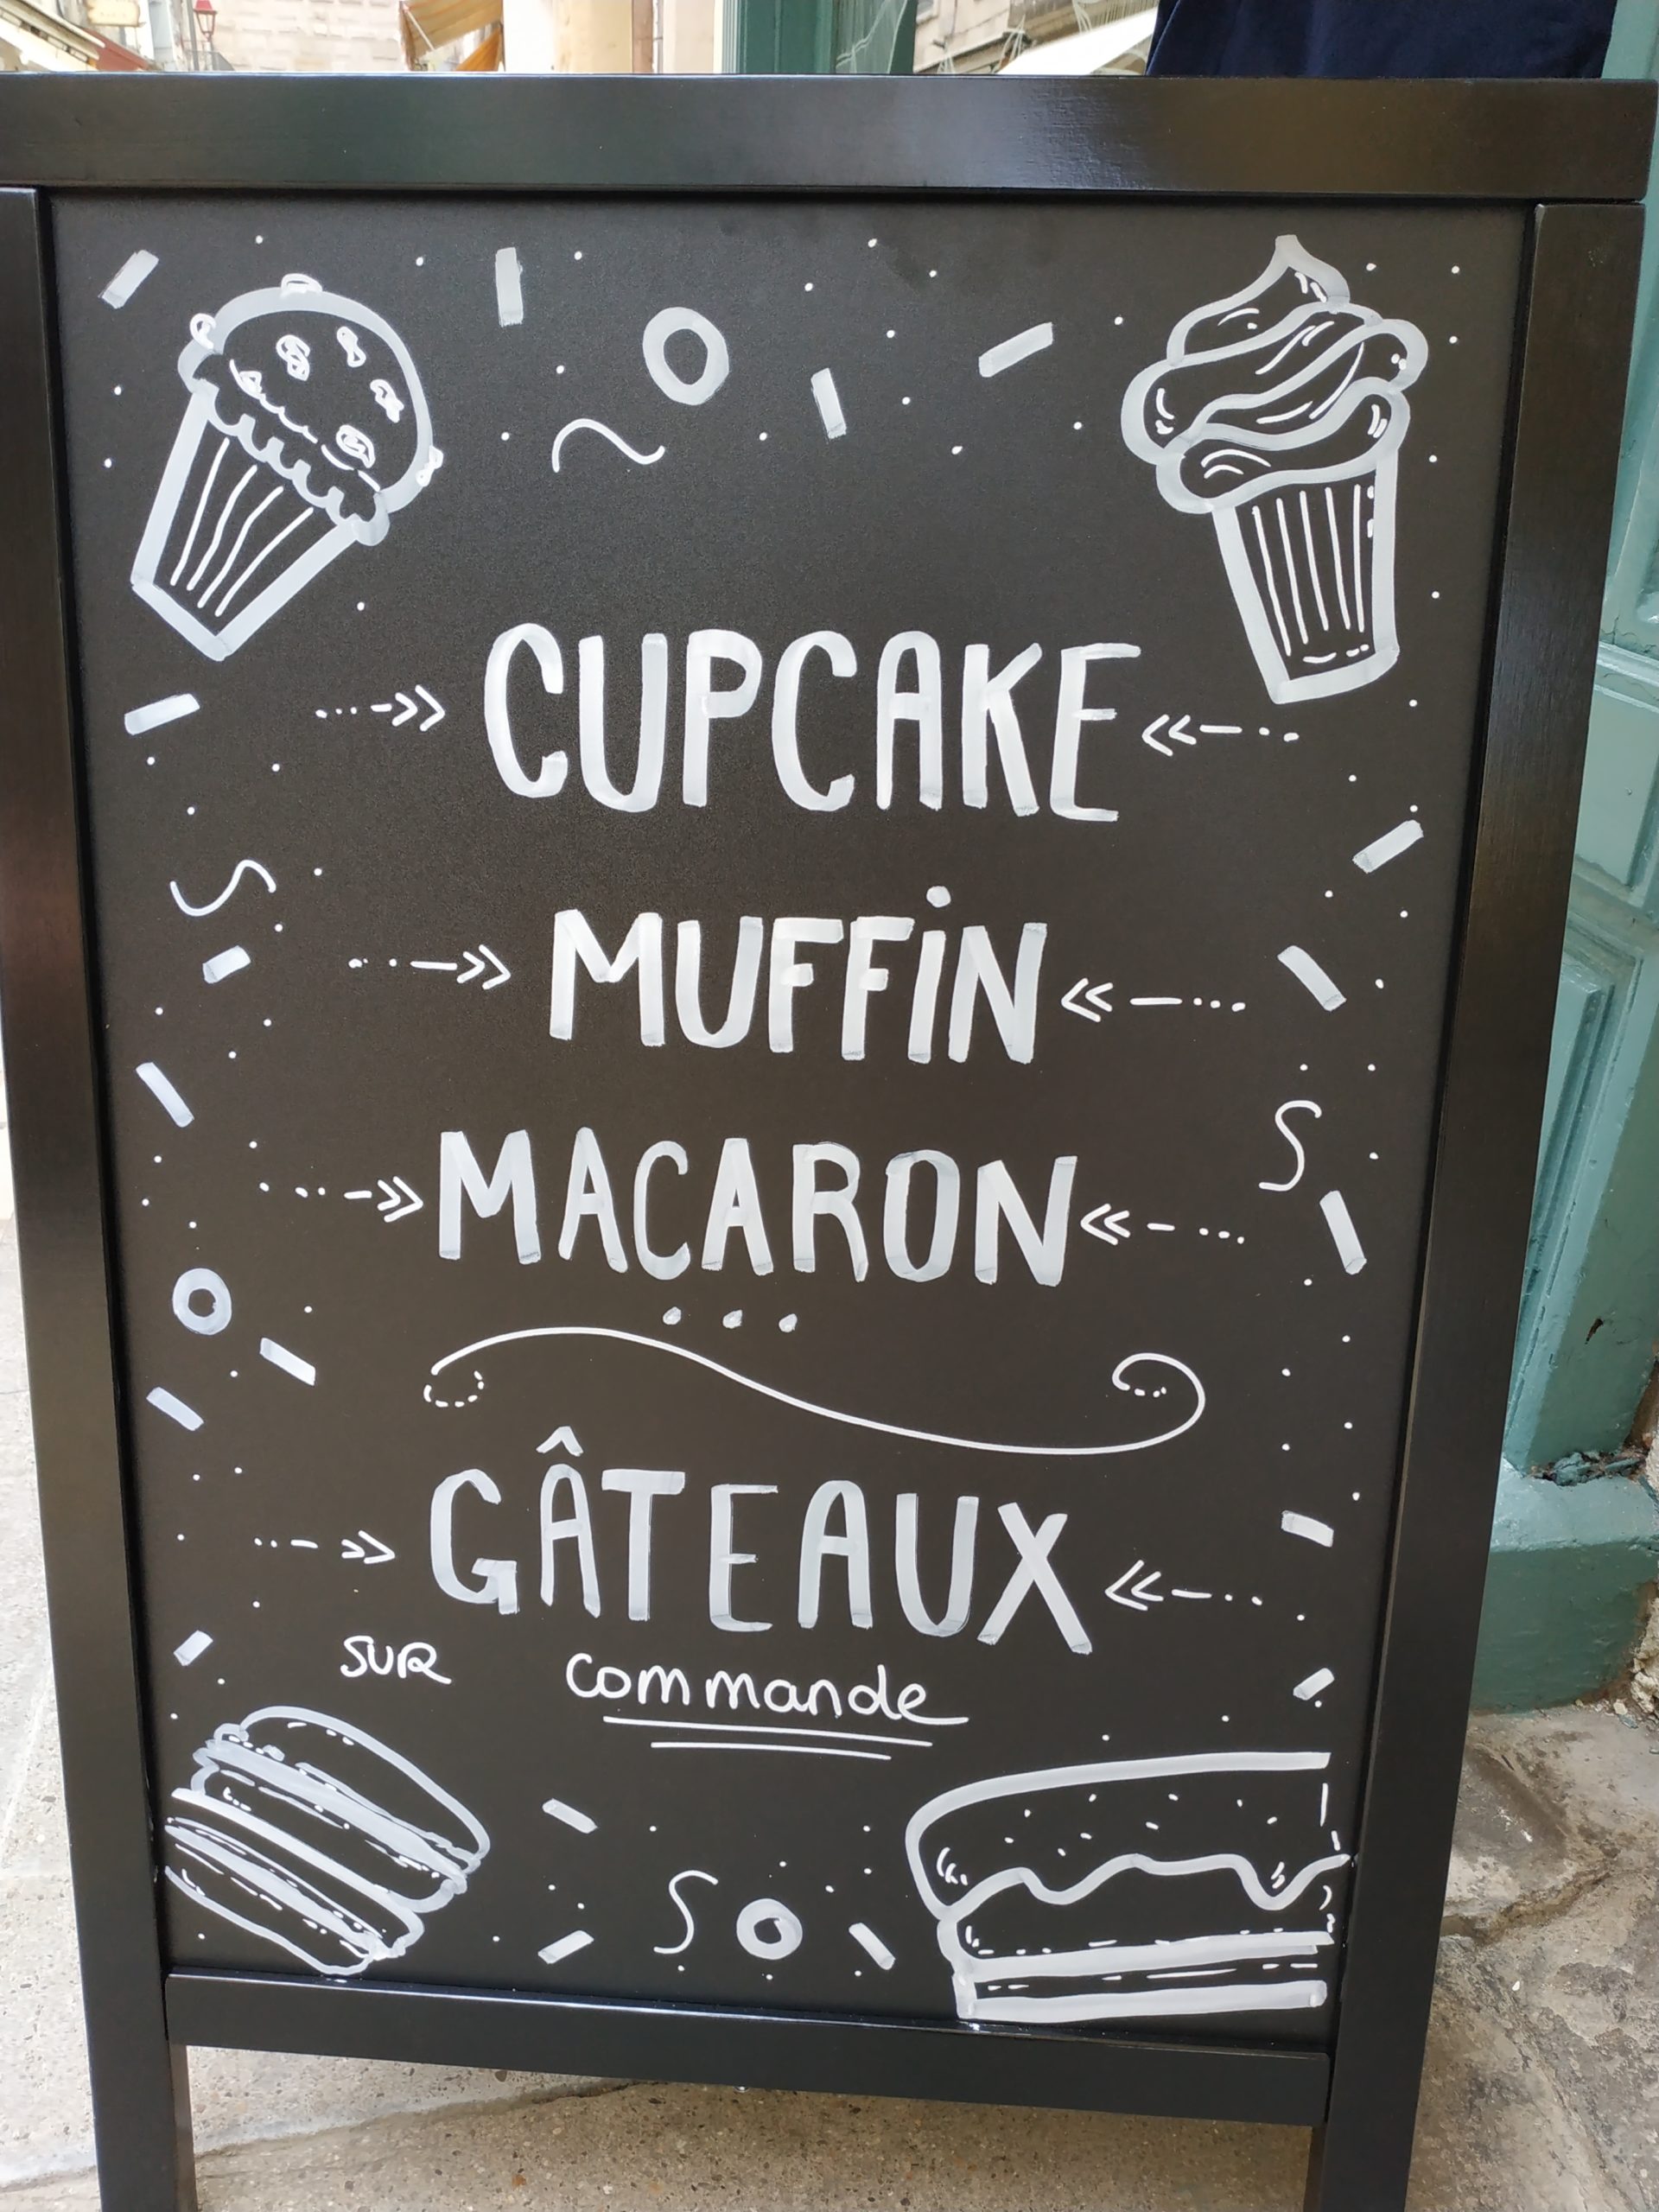 CUPCAKE
MUFFiN
MACARON
...
GÂTEAUX
SUR commande